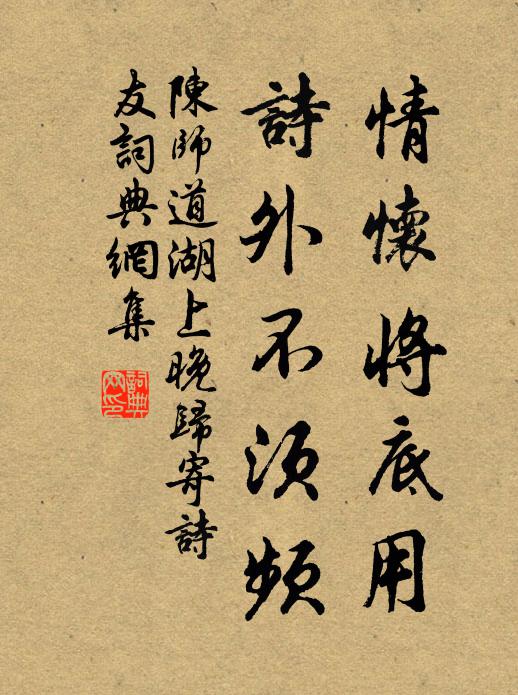 情懷將底用
詩外不須頻
陳師道湖上晚歸寄詩
友詞典網集
詞典